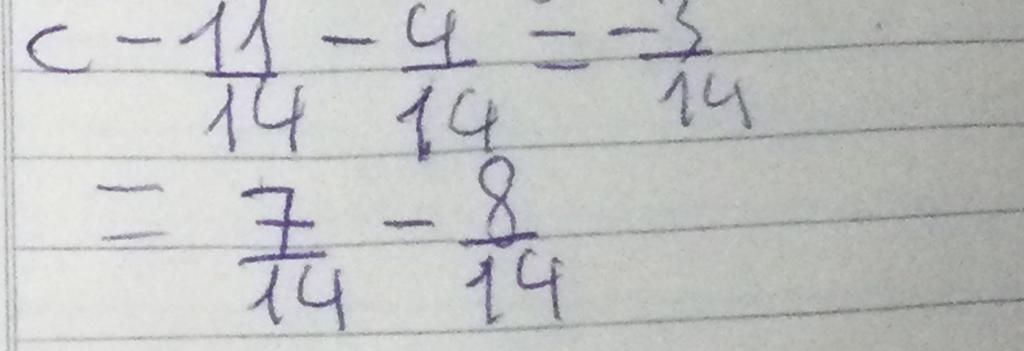 c - 11/14 - 4/14 = -3/14
= 7/14 - 8/14